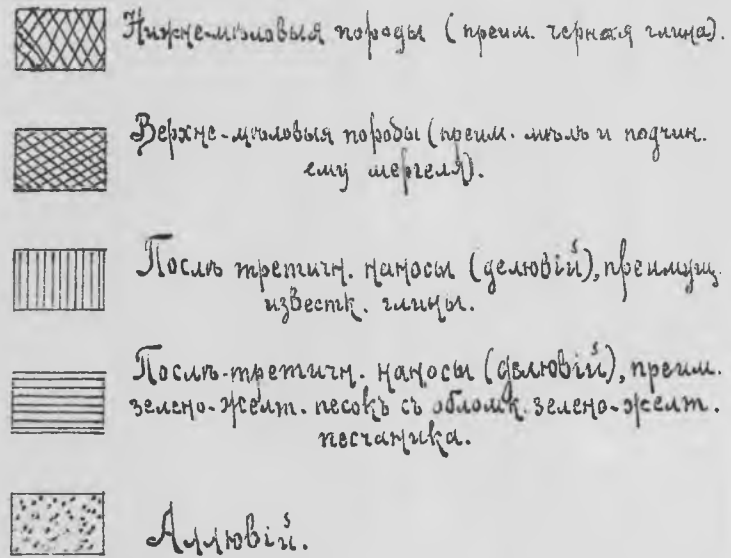 Нижне-мѣловыя породы (преим. черная глина).
Верхне-мѣловыя породы (преим. мѣлъ и подчин.
ему мергеля).
Послѣ третичн. наносы (делювій), преимущ.
известк. глины.
Послѣ-третичн. наносы (делювій), преим.
зелено-желт. песокъ съ обломк. зелено-желт.
песчаника.
Аллювій.